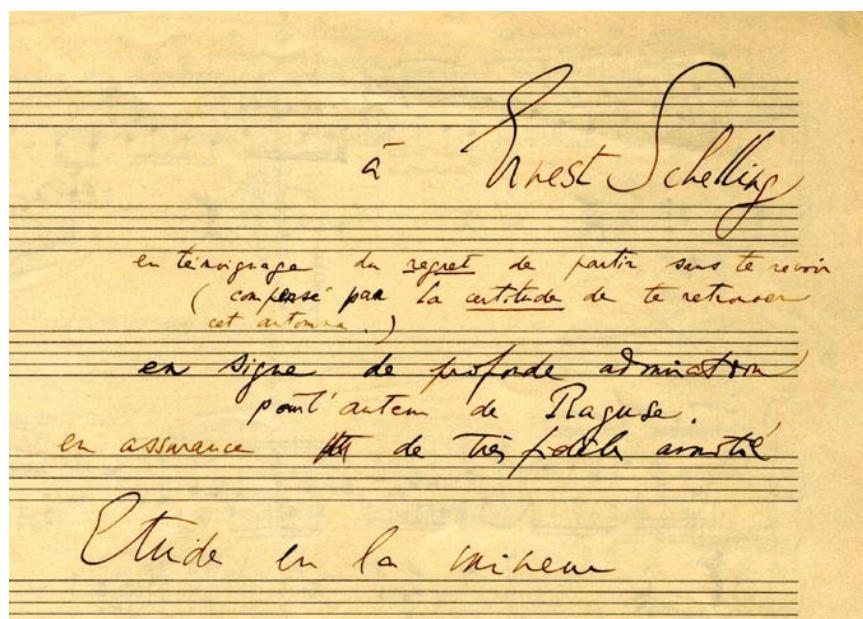 à Ernest Schelling
en témoignage du regret de partir sans te revoir
(compensé par la certitude de te retrouver
cet automne.)
en signe de profonde admiration
pour l'auteur de Raguse.
en assurance de très fidèle amitié
Etude en la mineur